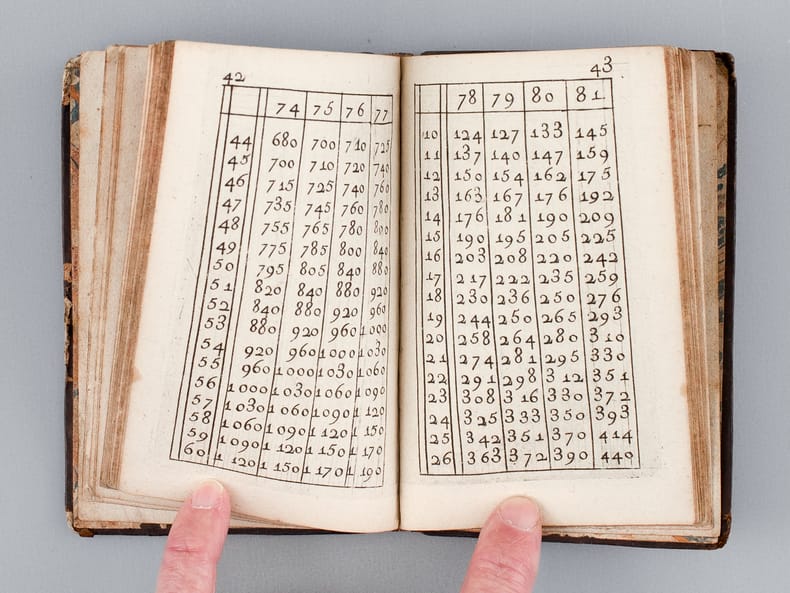 42
74 75 76 77
44 680 700 710 725
45 700 710 720 740
46 715 725 740 760
47 735 745 760 780
48 755 765 780 800
49 775 785 800 840
50 795 805 840 880
51 820 840 880 920
52 840 880 920 960
53 880 920 960 1000
54 920 960 1000 1030
55 960 1000 1030 1060
56 1000 1030 1060 1090
57 1030 1060 1090 1120
58 1060 1090 1120 1150
59 1090 1120 1150 1170
60 1120 1150 1170 1190
43
78 79 80 81
10 124 127 133 145
11 137 140 147 159
12 150 154 162 175
13 163 167 176 192
14 176 181 190 209
15 190 195 205 225
16 203 208 220 242
17 217 222 235 259
18 230 236 250 276
19 244 250 265 293
20 258 264 280 310
21 274 281 295 330
22 291 298 312 351
23 308 316 330 372
24 325 333 350 393
25 342 351 370 414
26 363 372 390 440